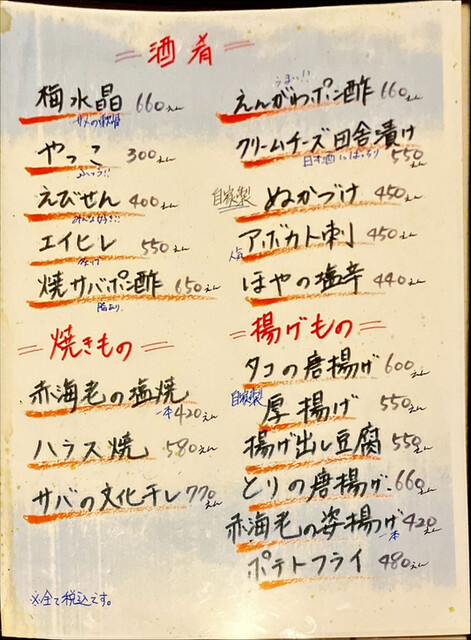 酒肴
梅水晶 660えん
サメの軟骨
やっこ 300えん
ふつう!!
えびせん 400えん
みんな好き!!
エイヒレ 550えん
焼サバポン酢 650えん
脂あり
うまい!!
えんがわポン酢 660えん
クリームチーズ田舎漬け
日本酒にばっちり 550えん
自家製 ぬかづけ 450えん
人気 アボカト刺 450えん
ほやの塩辛 440えん
焼きもの
赤海老の塩焼
一本420えん
ハラス焼 580えん
サバの文化干し 770えん
揚げもの
タコの唐揚げ 600えん
自家製 厚揚げ 550えん
揚げ出し豆腐 550えん
とりの唐揚げ 660えん
赤海老の姿揚げ 一本420えん
ポテトフライ 480えん
※全て税込です。